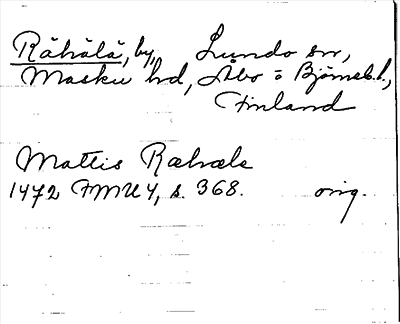 Rähälä, by, Lundo sn,
Masku hd, Åbo o Björneb. l.,
Finland
Mattis Ræhælæ
1472 FMU 4, s. 368. orig.